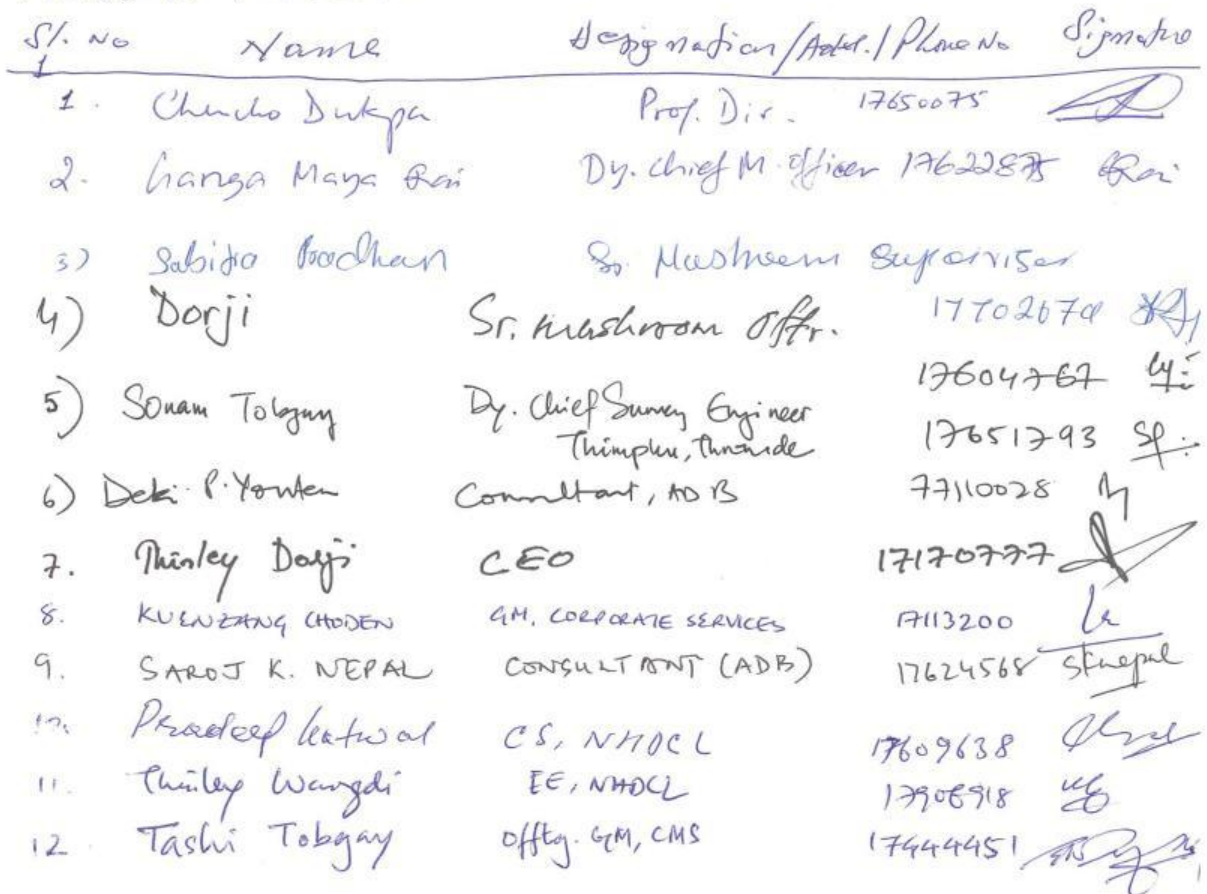 Sl. No Name Designation/Add./Phone No Signature
1. Chencho Dukpa Prof. Dir. 17650075
2. Ganga Maya Rai Dy. Chief M. Officer 17622875 Rai
3) Sabitra Pradhan Sr. Mushroom Supervisor
4) Dorji Sr. Mushroom Offr. 1770267
17604767
5) Sonam Tobgay Dy. Chief Survey Engineer
Thimphu, Thromde 17651793
6) Deki P. Yonten Consultant, ADB 77110028
7. Thinley Dorji CEO 17170777
8. KUENZANG CHODEN GM, CORPORATE SERVICES 17113200
9. SAROJ K. NEPAL CONSULTANT (ADB) 17624568 SKnepal
10. Pradeep Katwal CS, NHDCL 17609638
11. Thinley Wangdi EE, NHDCL 17906918
12. Tashi Tobgay Offtg. GM, CMS 17444451